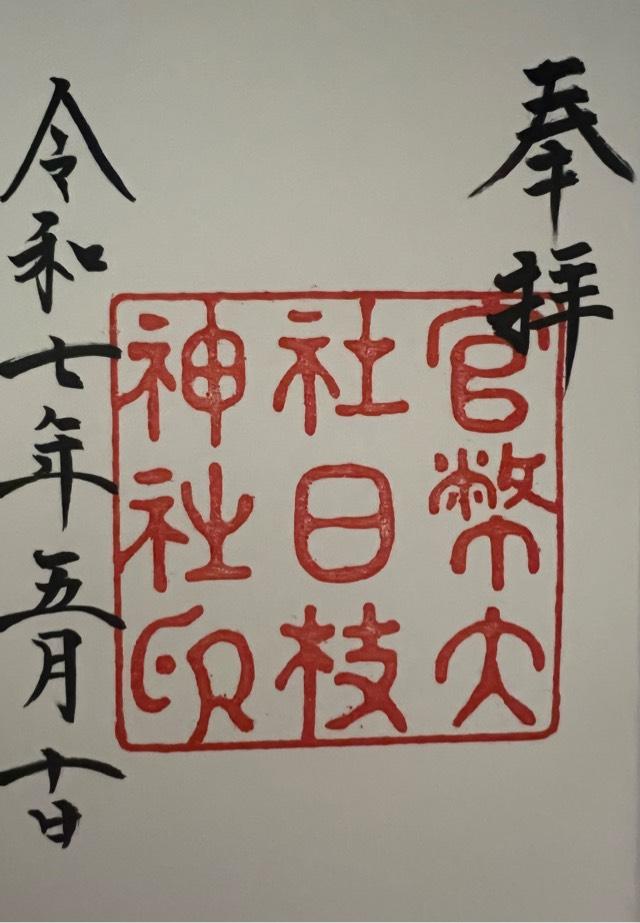 奉拝
官幣大
社日枝
神社印
令和七年五月十日